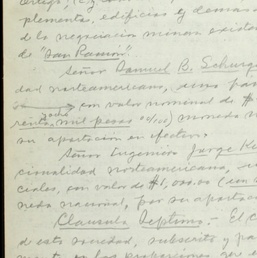 plementos, edificios y demas
de la negociacion minera existen
de "San Ramón".
Señor Samuel B. Schurg
dad norteamericano, una par
con valor nominal de $
renta y ocho mil pesos 00/100) moneda na
su aportación en efectivo.
Señor Ingeniero Jorge K
cionalidad norteamericana, u
ciales, con valor de $1,000.00 (un m
neda nacional, por su aportaci
Clausula Septima.- El c
de esta sociedad, subscrito y pa